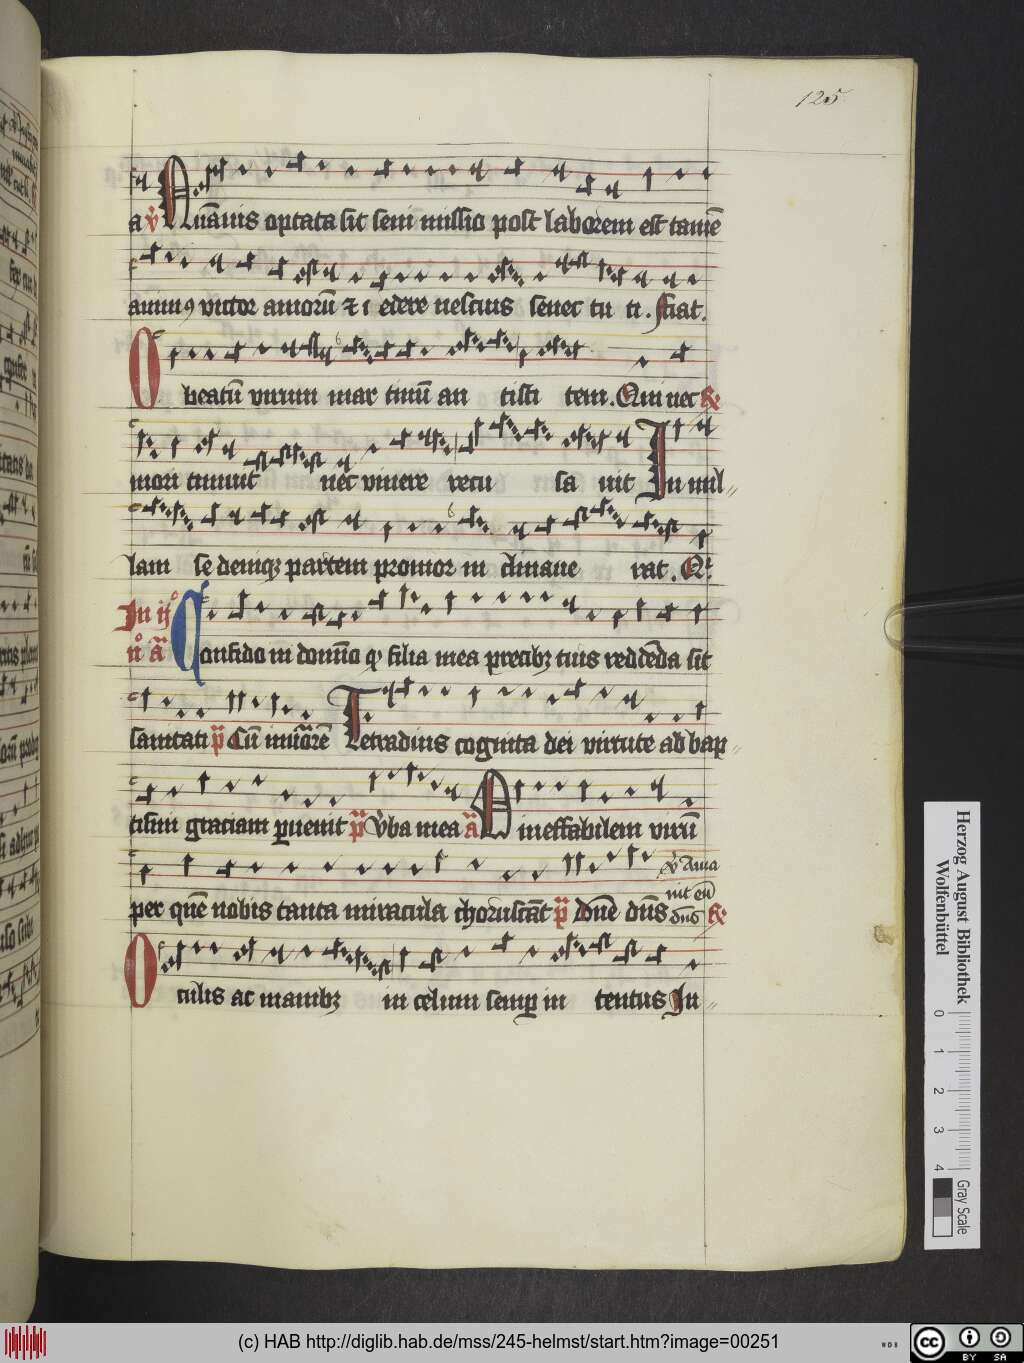 125.
a v̾ Quãuis optata sit seni missio post laborem est tamẽ
animꝰ victor annorũ ⁊ cedere nescius senectuti. Fiat.
O beatũ virum martinũ antistitem. Qui nec R̾
mori timuit nec viuere recusauit In mil〃
lam se deniqꝫ partem pronior in clinauerat. Qr̾
In ijº Confido in domĩo qꝫ filia mea precibꝫ tuis reddẽda sit
nº aã
sanitati p̃s Cũ inuocarẽ Tetradius cognita dei virtute ad bap〃
tismi graciam ꝑuenit p̃s Ṽba mea aã O ineffabilem virũ
per quẽ nobis tanta miracula choruscãt p̃s dñe dñs
v̾ Ama
uit eũ
dñs R̾
Oculis ac manibꝫ in celum semꝑ intentus In〃
Herzog August Bibliothek
Wolfenbüttel
0 1 2 3 4
Gray Scale
(c) HAB http://diglib.hab.de/mss/245-helmst/start.htm?image=00251
WDB
cc BY SA